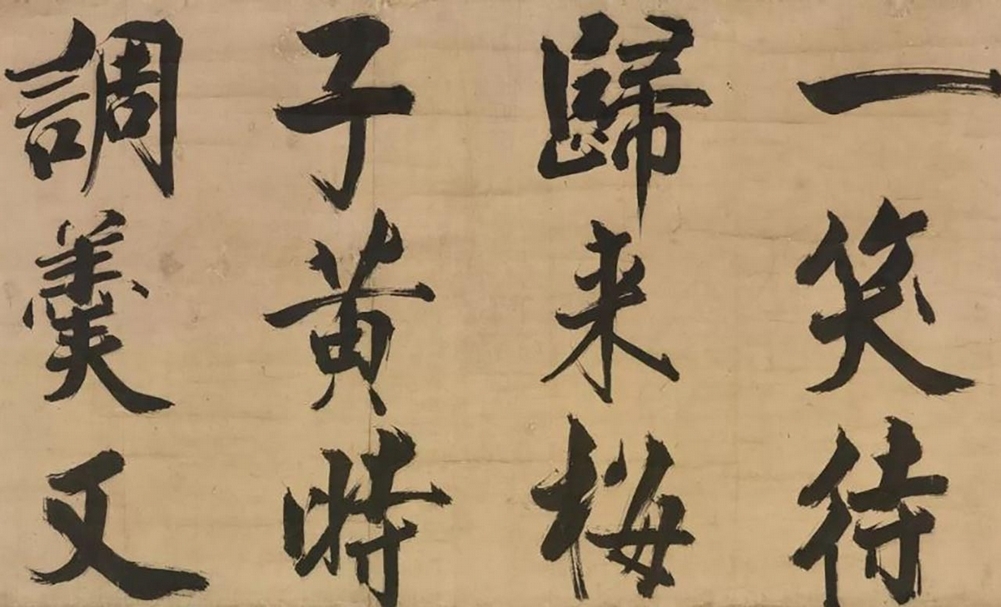 一笑待
歸来梅
子黄時
調羹又